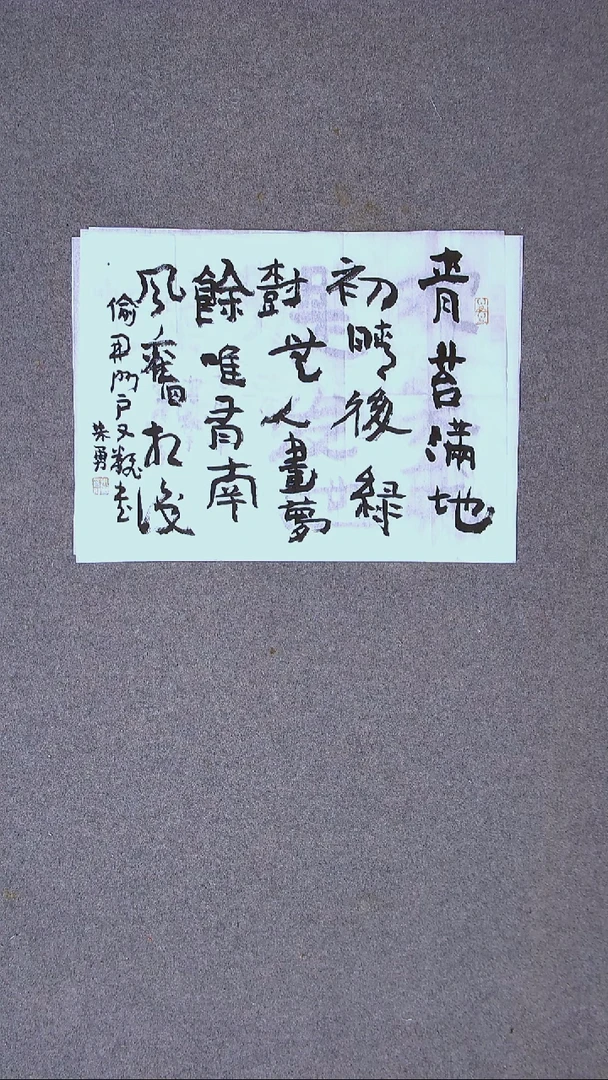 青苔滿地
初晴後綠
樹无人晝夢
餘唯有南
風舊相識
偷開門戶又翻書
朱勇